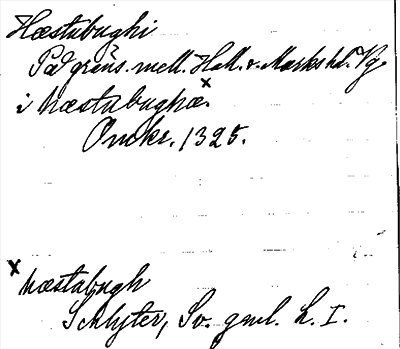 Hæstabughi
På gräns. mell. Hall. o. Marks hd. Vg.
i hæstabughæ. x
Omkr. 1325.
x hæstabugh
Schlyter, Sv. gml. L. I.